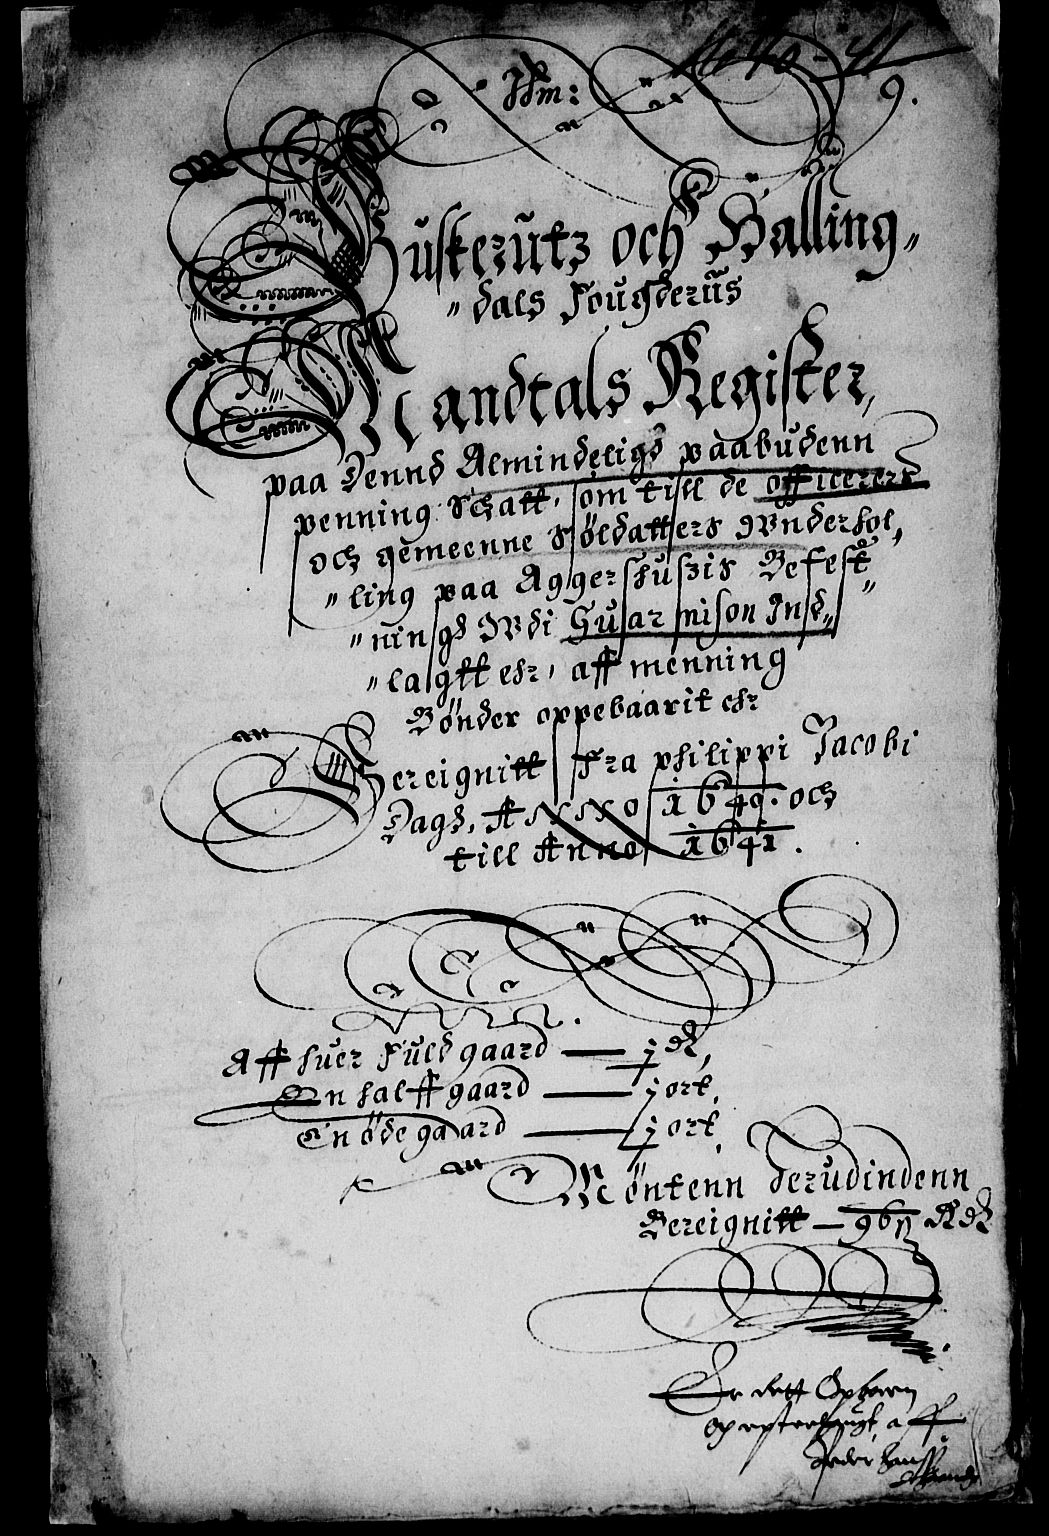 1640-41
9.
Idm:
Buskerutz och Halling„
„dals Fougderiis
Mandtals Register,
paa Dennd Almindeligd paabudenn
penning Schatt, som till de officerers
och gemeenne Søldatters Wnderhol„
„ling paa Aggershuszis Befest„
„ningd Udi Guarnison Ind„
„lagtt ehr, aff menning
Bønder oppebaarit ehr
Bereignitt Fra philippi Jacobi
Dagh, Anno 1640. och
till Anno 1641.
Aff huer Fuld gaard — j dr,
En halff gaard — j ort,
En øde gaard — j ort,
Møntenn derudindenn
Bereignitt — 96 Rdr
Er dett Opbørn
Peder